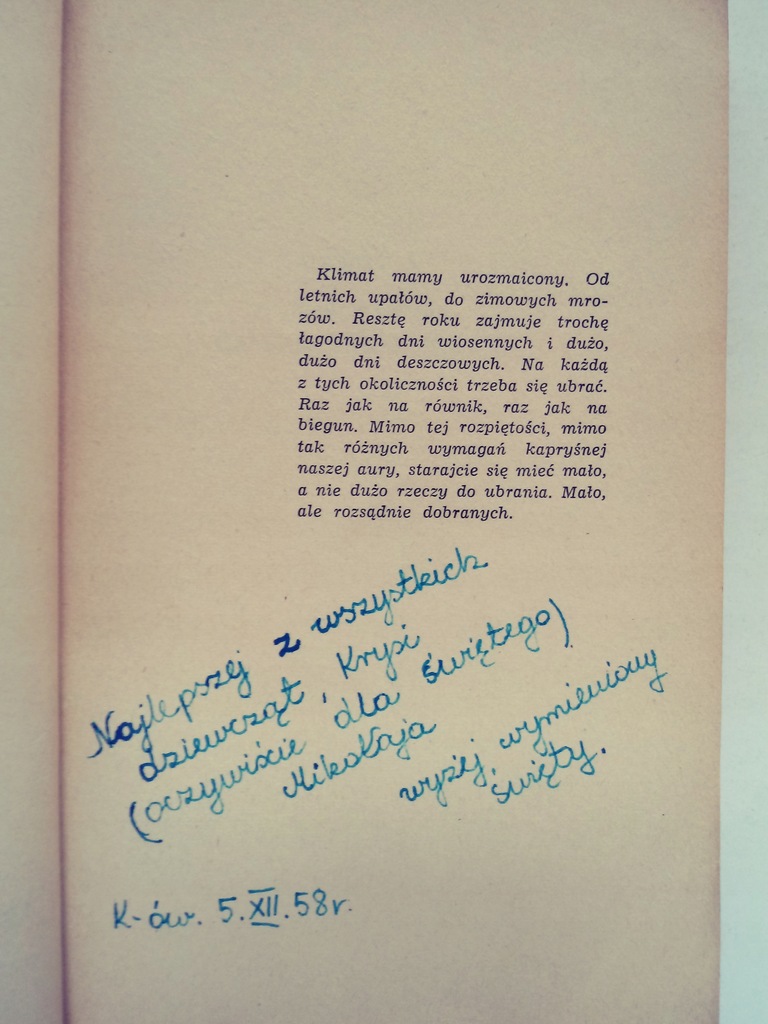 Klimat mamy urozmaicony. Od
letnich upałów, do zimowych mro-
zów. Resztę roku zajmuje trochę
łagodnych dni wiosennych i dużo,
dużo dni deszczowych. Na każdą
z tych okoliczności trzeba się ubrać.
Raz jak na równik, raz jak na
biegun. Mimo tej rozpiętości, mimo
tak różnych wymagań kapryśnej
naszej aury, starajcie się mieć mało,
a nie dużo rzeczy do ubrania. Mało,
ale rozsądnie dobranych.
Najlepszej z wszystkich
dziewcząt, Krysi
(oczywiście dla świętego)
Mikołaja
wyżej wymieniony
święty.
K-ów. 5.XII.58r.